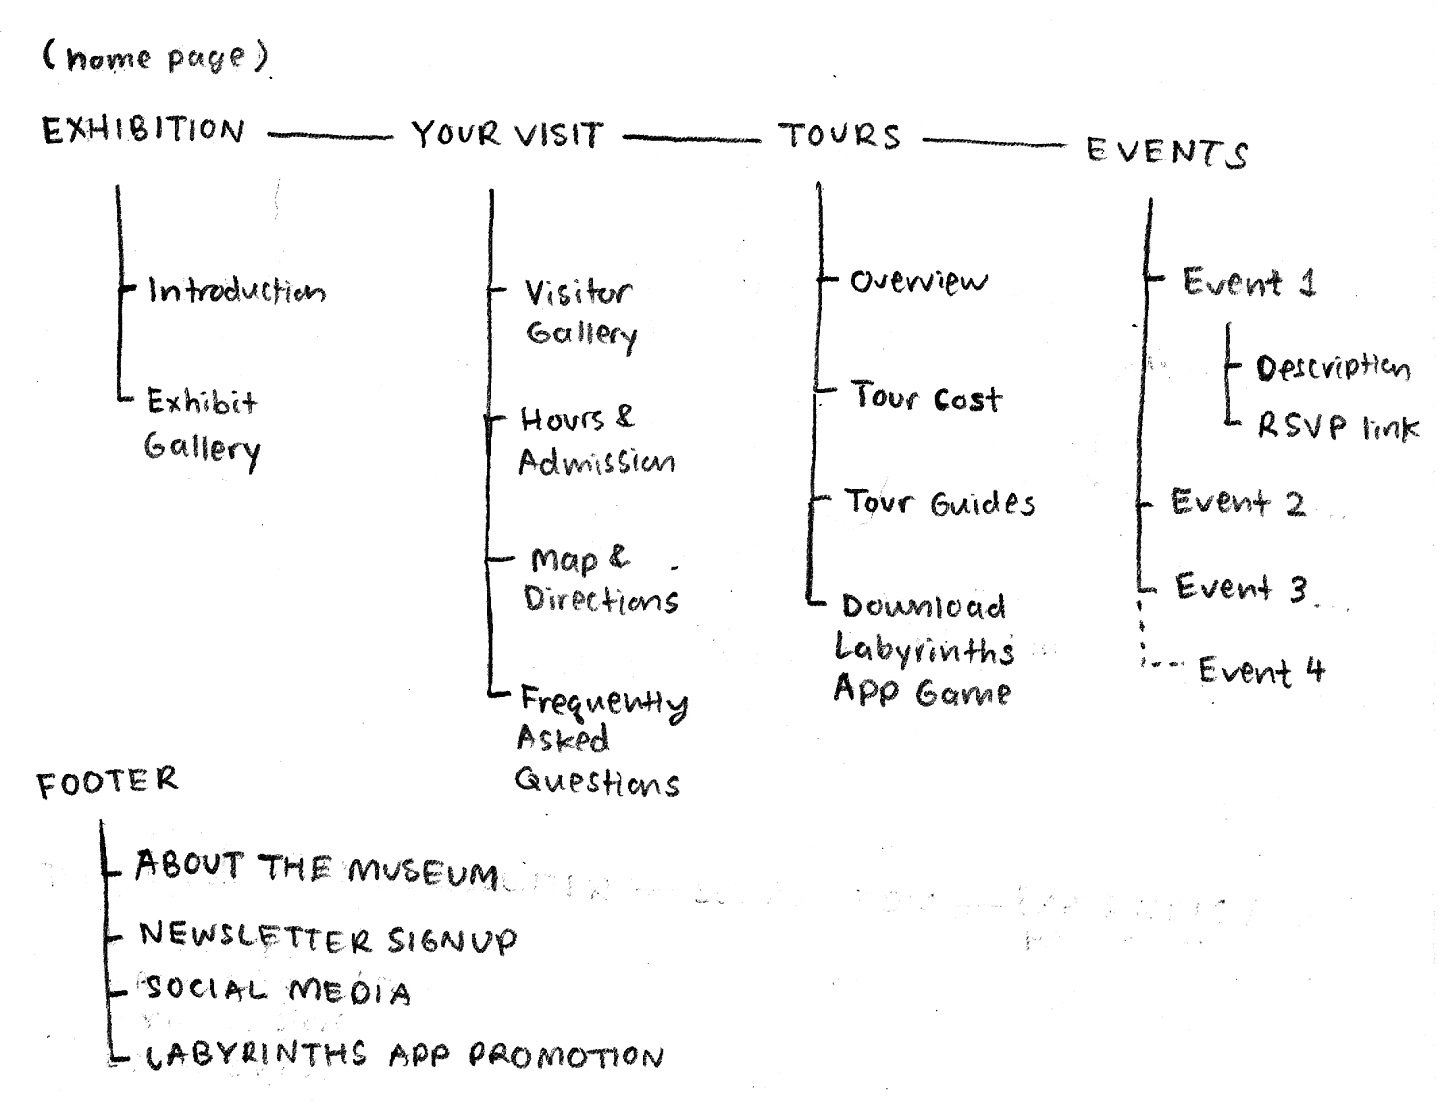 (home page)
EXHIBITION
Introduction
Exhibit
Gallery
YOUR VISIT
Visitor
Gallery
Hours &
Admission
Map &
Directions
Frequently
Asked
Questions
TOURS
Overview
Tour Cost
Tour Guides
Download
Labyrinths
App Game
EVENTS
Event 1
Description
RSVP link
Event 2
Event 3
Event 4
FOOTER
ABOUT THE MUSEUM
NEWSLETTER SIGNUP
SOCIAL MEDIA
LABYRINTHS APP PROMOTION